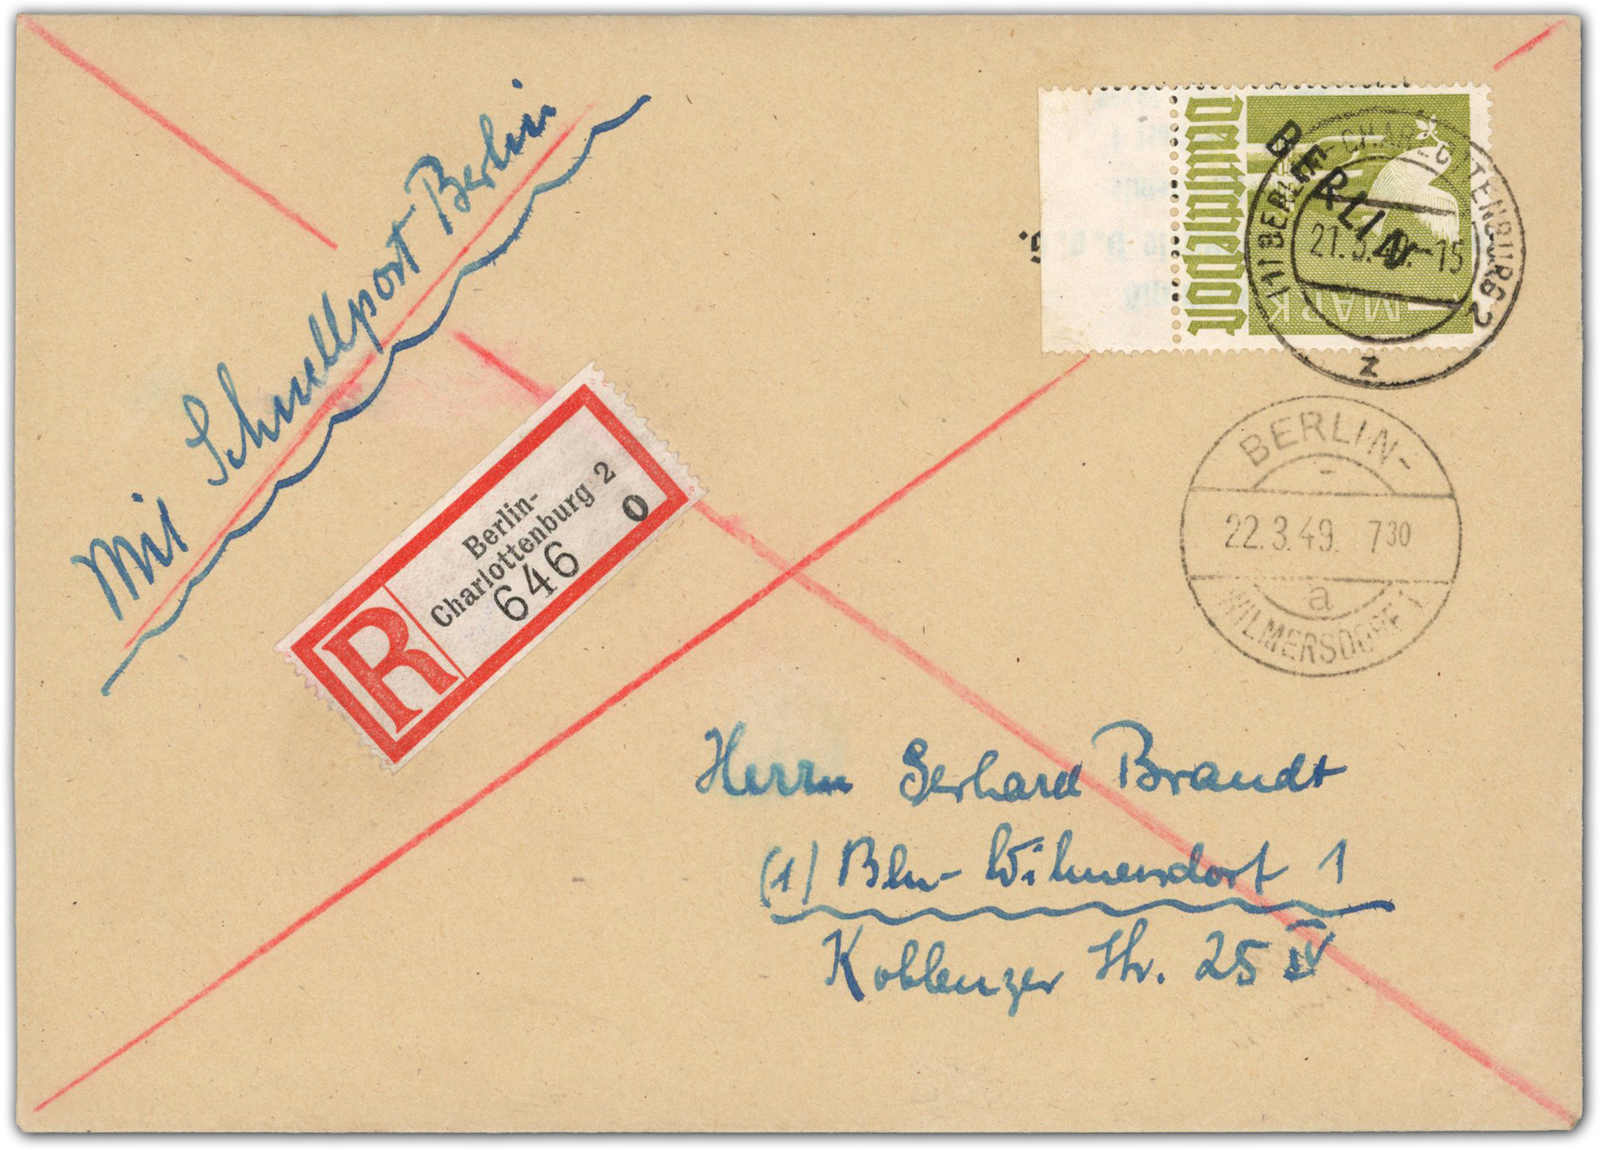 Mit Schnellpost Berlin
Deutsche Post
MARK
BERLIN
(1) BERLIN-CHARLOTTENBURG 2
21.3.49.-15
z
BERLIN-
22.3.49. 730
a
WILMERSDORF 1
R
Berlin-
Charlottenburg 2
646
0
Herrn Gerhard Brandt
(1) Bln-Wilmersdorf 1
Koblenzer Str. 25 IV